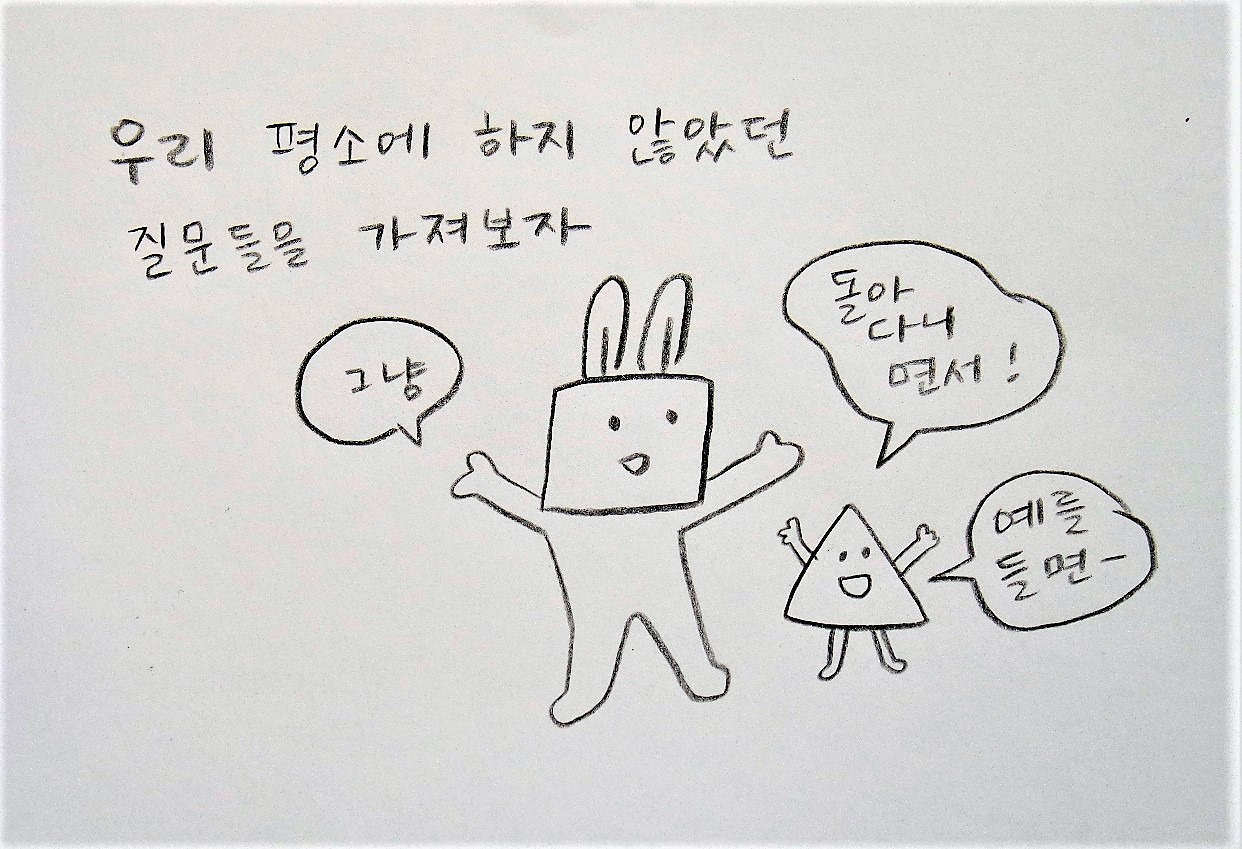 우리 평소에 하지 않았던
질문들을 가져보자
그냥
돌아
다니
면서!
예를
들면-